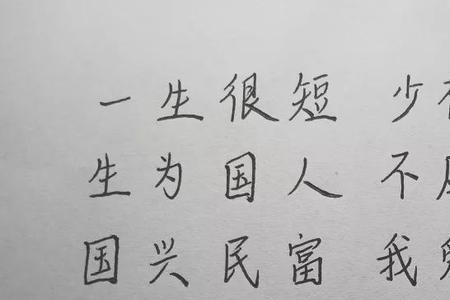 一生很短 少
生为国人 不
国兴民富 我